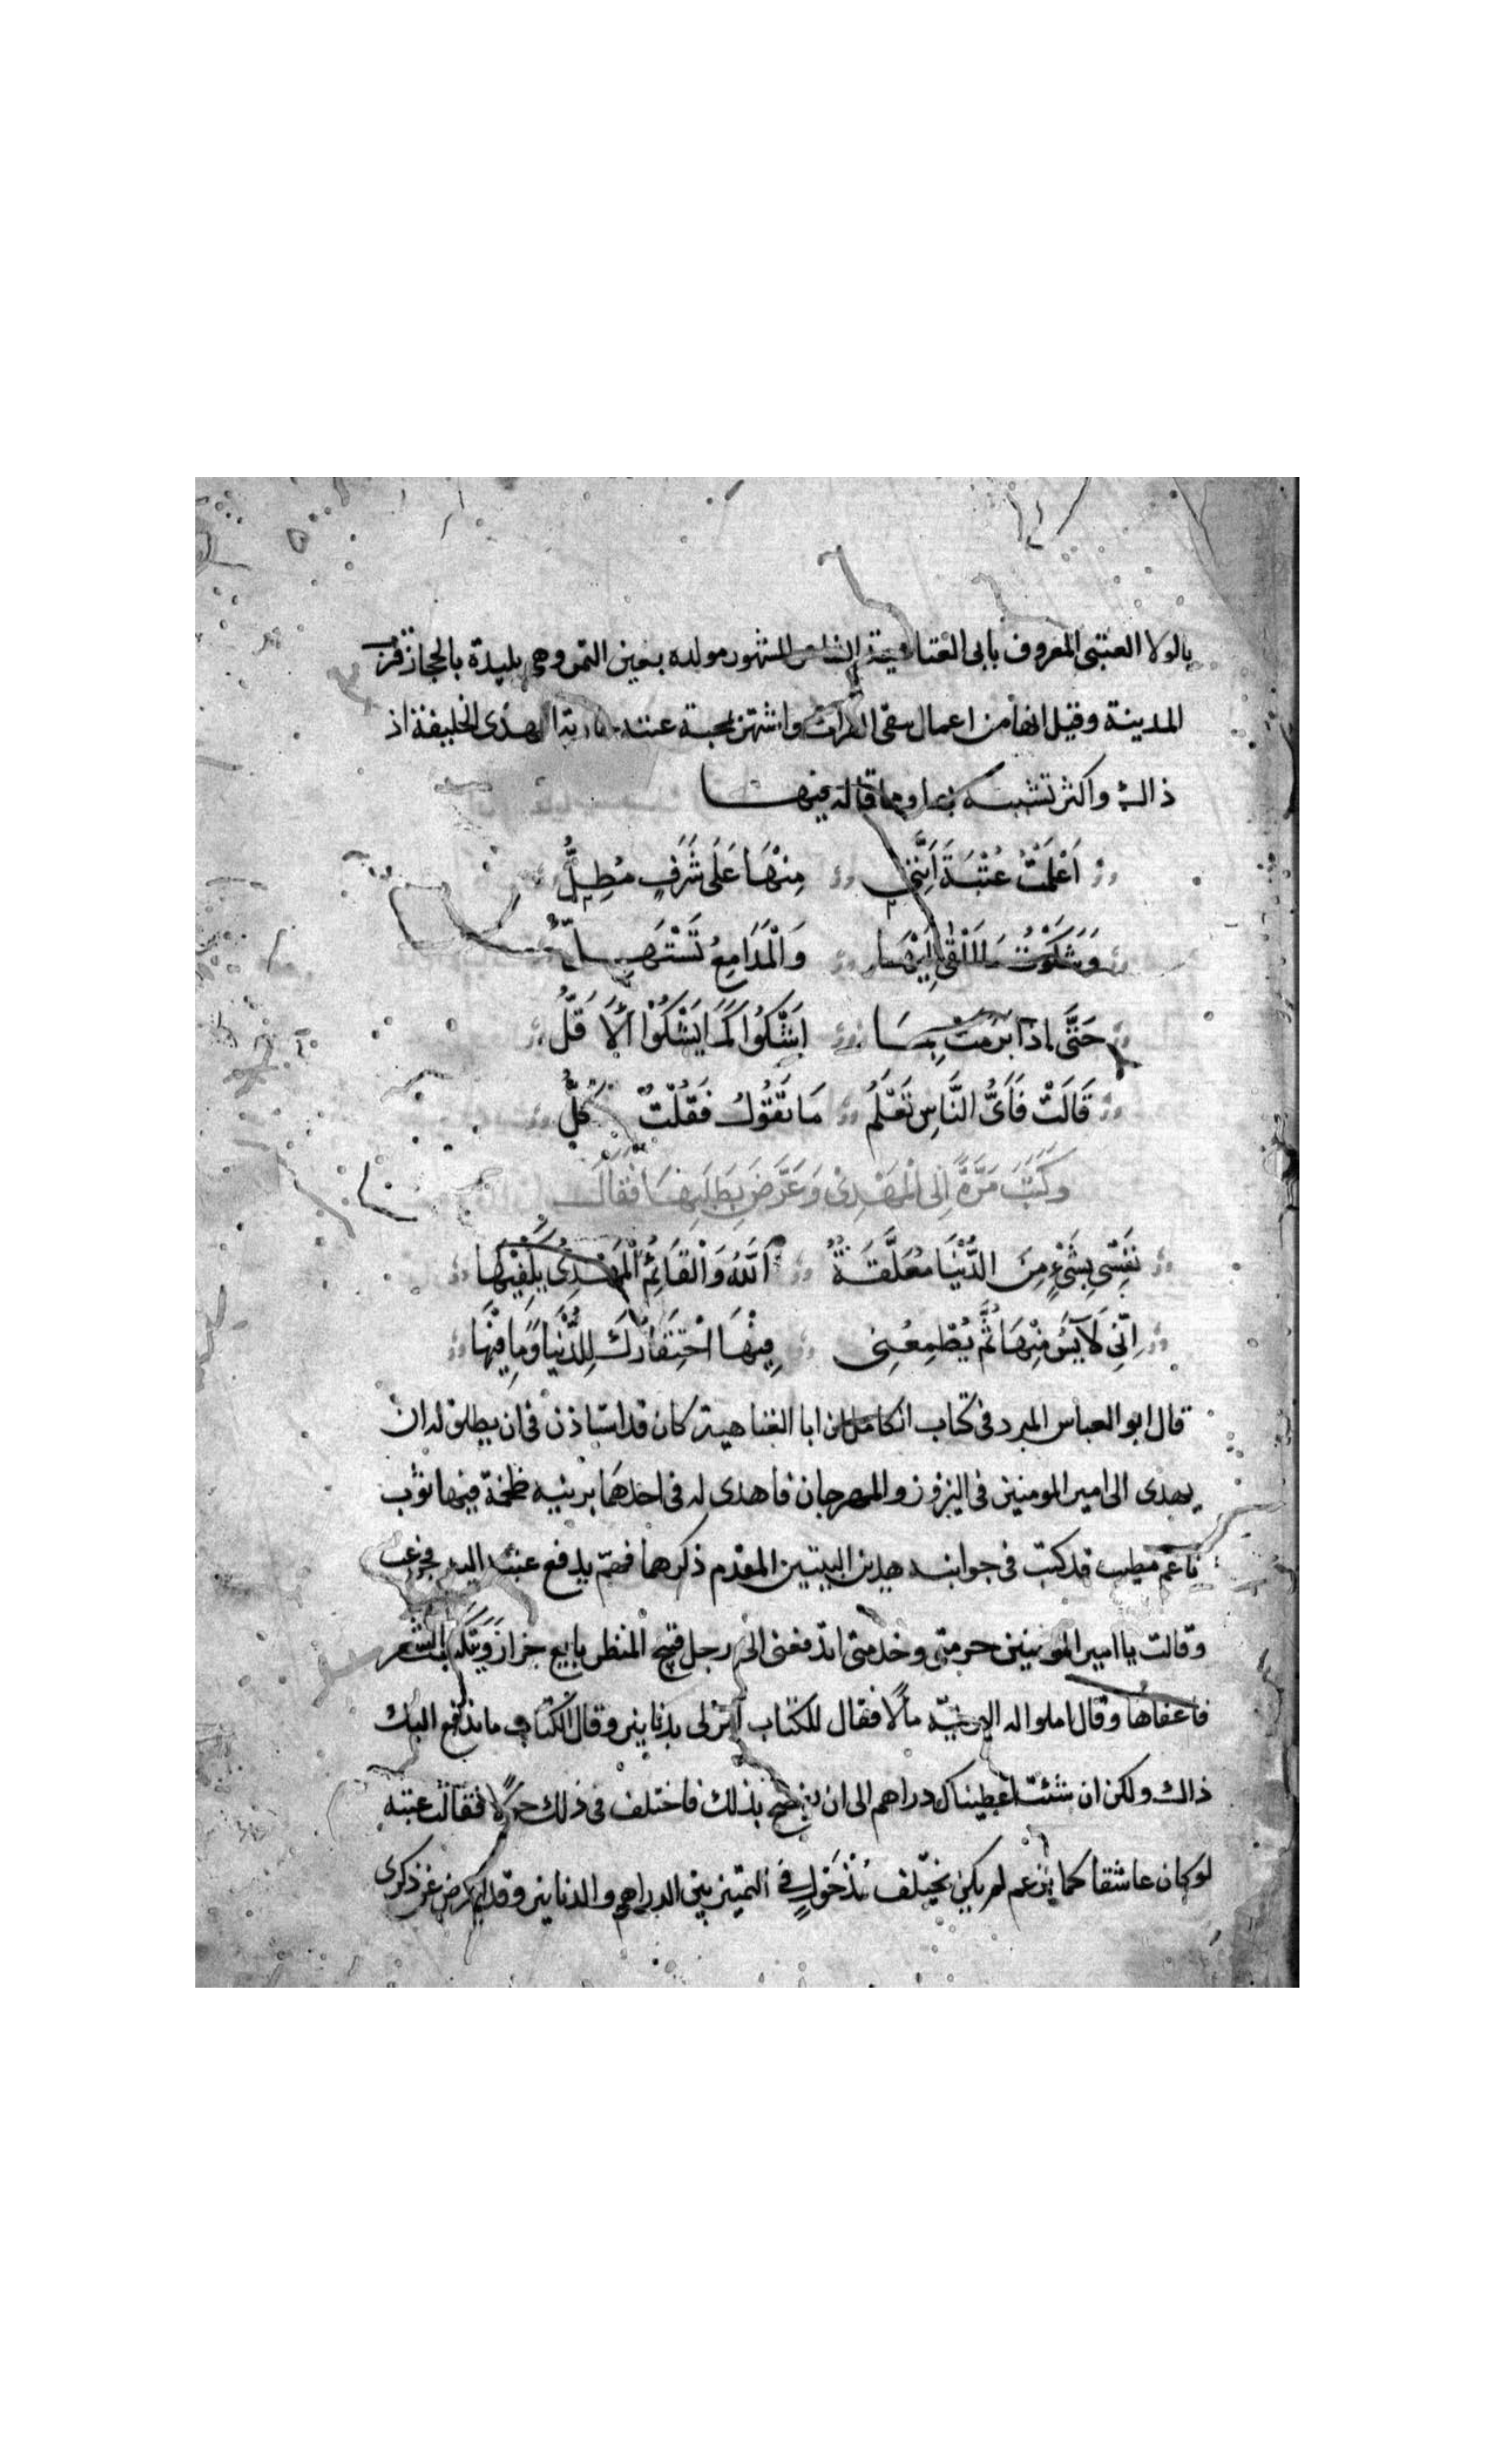 بالولا العتبى المعروف بابى العتاهية الشاعر المشهور مولده بعين التمر وهى بليدة بالحجاز قرب
المدينة وقيل انها من اعمال سقى الفرات واشتهر بمحبة عتبه جارية المهدى الخليفة اذ
ذاك واكثر تشبيبه بها ومما قاله فيها
اَعْلَمْتُ عُتْبَةَ اَنَّنِي مِنْهَا عَلَى شَرَفٍ مُطِلُّ
وَشَكَوْتُ مَا اَلْقَى اِلَيْهَا وَالْمَدَامِعُ تَسْتَهِلُّ
حَتَّى اِذَا بَرِمَتْ بِمَا اَشْكُوا كَمَا يَشْكُوْا الْاَقَلُّ
قَالَتْ فَاَىُّ النَّاسِ تَعْلَمُ مَا تَقُوْلُ فَقُلْتُ كُلُّ
وَكَتَبَ مَرَّةً اِلَى الْمَهْدِىْ وَعَرَّضَ بِطَلَبِهَا فَقَالَ
نَفْسِى بِشَىْءٍ مِنَ الدُّنْيَا مُعَلَّقَةٌ اَللّٰهُ وَالْقَائِمُ الْمَهْدِىُ يَكْفِيْهَا
اِنِّى لَاَيْئَسُ مِنْهَا ثُمَّ يُطْمِعُنِى فِيْهَا احْتِقَارُكَ لِلدُّنْيَا وَمَا فِيْهَا
قال ابو العباس المبرد فى كتاب الكامل ان ابا العتاهية كان قد استاذن فى ان يطلق له ان
يهدى الى امير المومنين فى النيروز والمهرجان فاهدى له فى احدهما برنيه ضخمة فيها ثوب
ناعم مطيب قد كتب فى جوانبه هذين البيتين المقدم ذكرهما فهمّ بدفع عتبه اليه فجزعت
وقالت يا امير المومنين حرمتى وخدمتى اتدفعنى الى رجل قبيح المنظر بايع جرار ويتكسب بالشعر
فاعفاها وقال املوا له البرنيّه مالًا فقال للكتاب امر لى بدنانير وقال الكتاب ما ندفع اليك
ذاك ولكن ان شئت اعطيناك دراهم الى ان يفصح بذلك فاختلف فى ذلك حولًا فقالت عتبه
لو كان عاشقا كما يزعم لم يكن يختلف منذ حول فى التميز بين الدراهم والدنانير وقد اعرض عن ذكرى